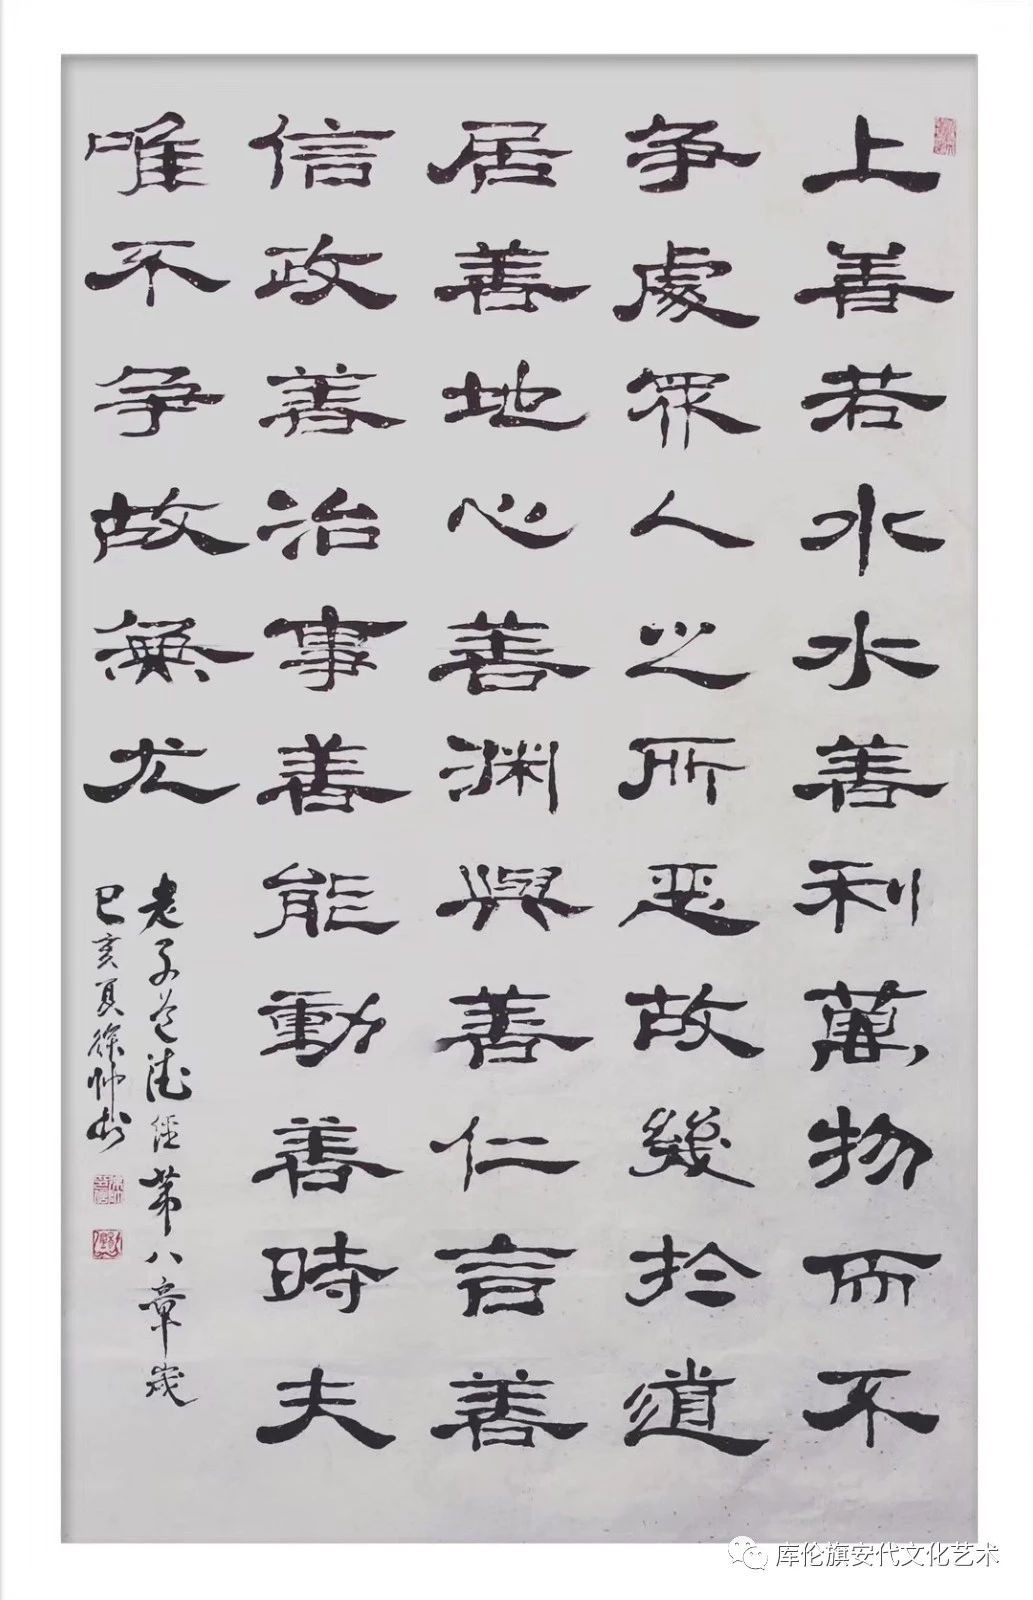 上善若水水善利萬物而不
争處眾人之所惡故幾於道
居善地心善渊與善仁言善
信政善治事善能動善時夫
唯不争故無尤
老子道德經第八章歲
己亥夏徐帅书
库伦旗安代文化艺术